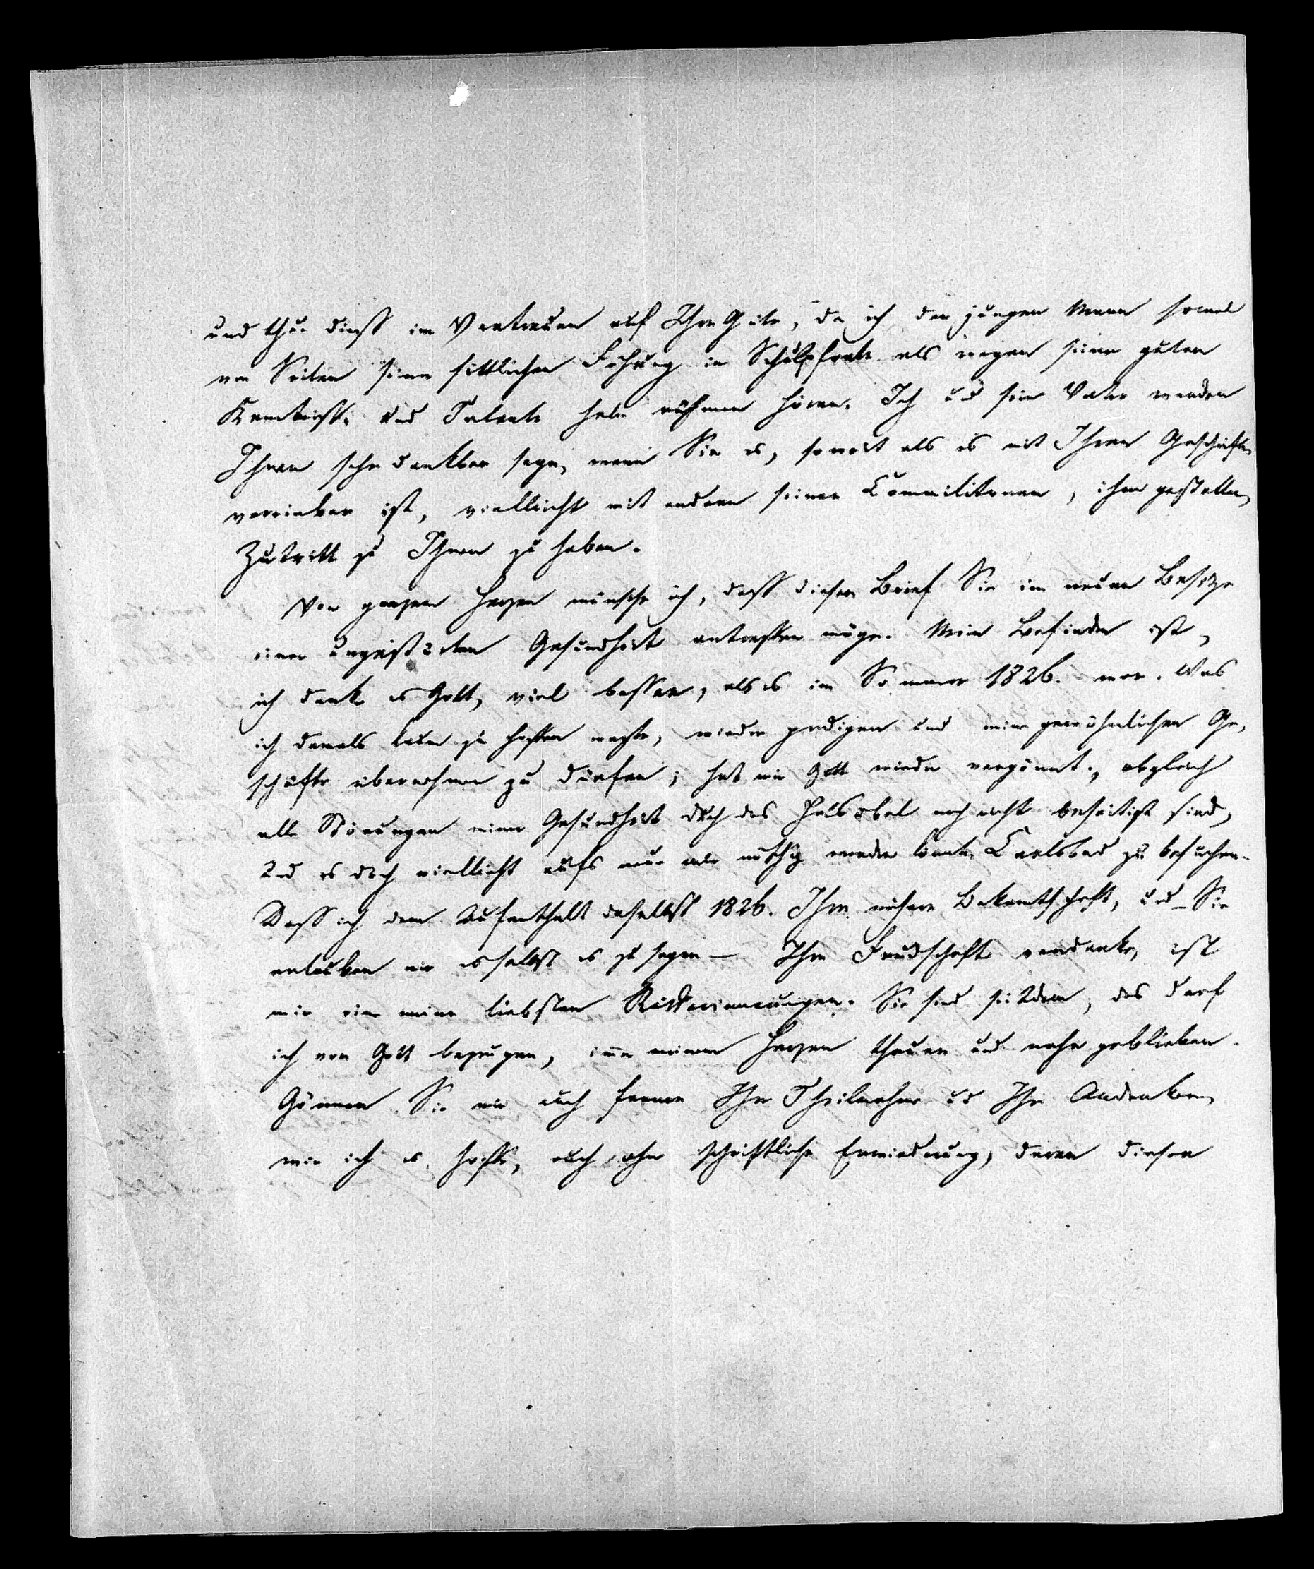 und thue dieß im Vertrauen auf Ihre Güte, da ich den jungen Mann sowol
von Seiten seiner sittlichen Führung in Schulpforte als wegen seiner guten
Kenntniße und Talente habe rühmen hören. Ich und sein Vater werden
Ihnen sehr dankbar seyn, wenn Sie es, soweit als es mit Ihren Geschäften
vereinbar ist, vielleicht mit andern seiner Commilitonen, ihm gestatten,
Zutritt zu Ihnen zu haben.
Von ganzem Herzen wünsche ich, daß dieser Brief Sie im neuen Besitze
einer ungestörten Gesundheit antreffen möge. Mein Befinden ist,
ich danke es Gott, viel besser, als es im Sommer 1826. war. Was
ich damals kaum zu hoffen wagte, wieder predigen und meine gewöhnlichen Ge-
schäfte übernehmen zu dürfen, hat mir Gott wieder vergönnt, obgleich
alle Störungen meiner Gesundheit durch das Halsübel noch nicht beseitigt sind,
und es doch vielleicht aufs neue nöthig werden könnte, Carlsbad zu besuchen.
Daß ich dem Aufenthalt daselbst 1826. Ihre nähere Bekanntschaft, und Sie
erlauben mir es selbst es zu sagen — Ihre Freundschaft verdanke, ist
mir eine meiner liebsten Rückerinnerungen. Sie sind seitdem, das darf
ich vor Gott bezeugen, immer meinem Herzen theuer und nahe geblieben.
Gönnen Sie mir auch ferner Ihre Theilnahme und Ihr Andenken,
wie ich es hoffe, auch ohne schriftliche Erwiederung, deren dieser